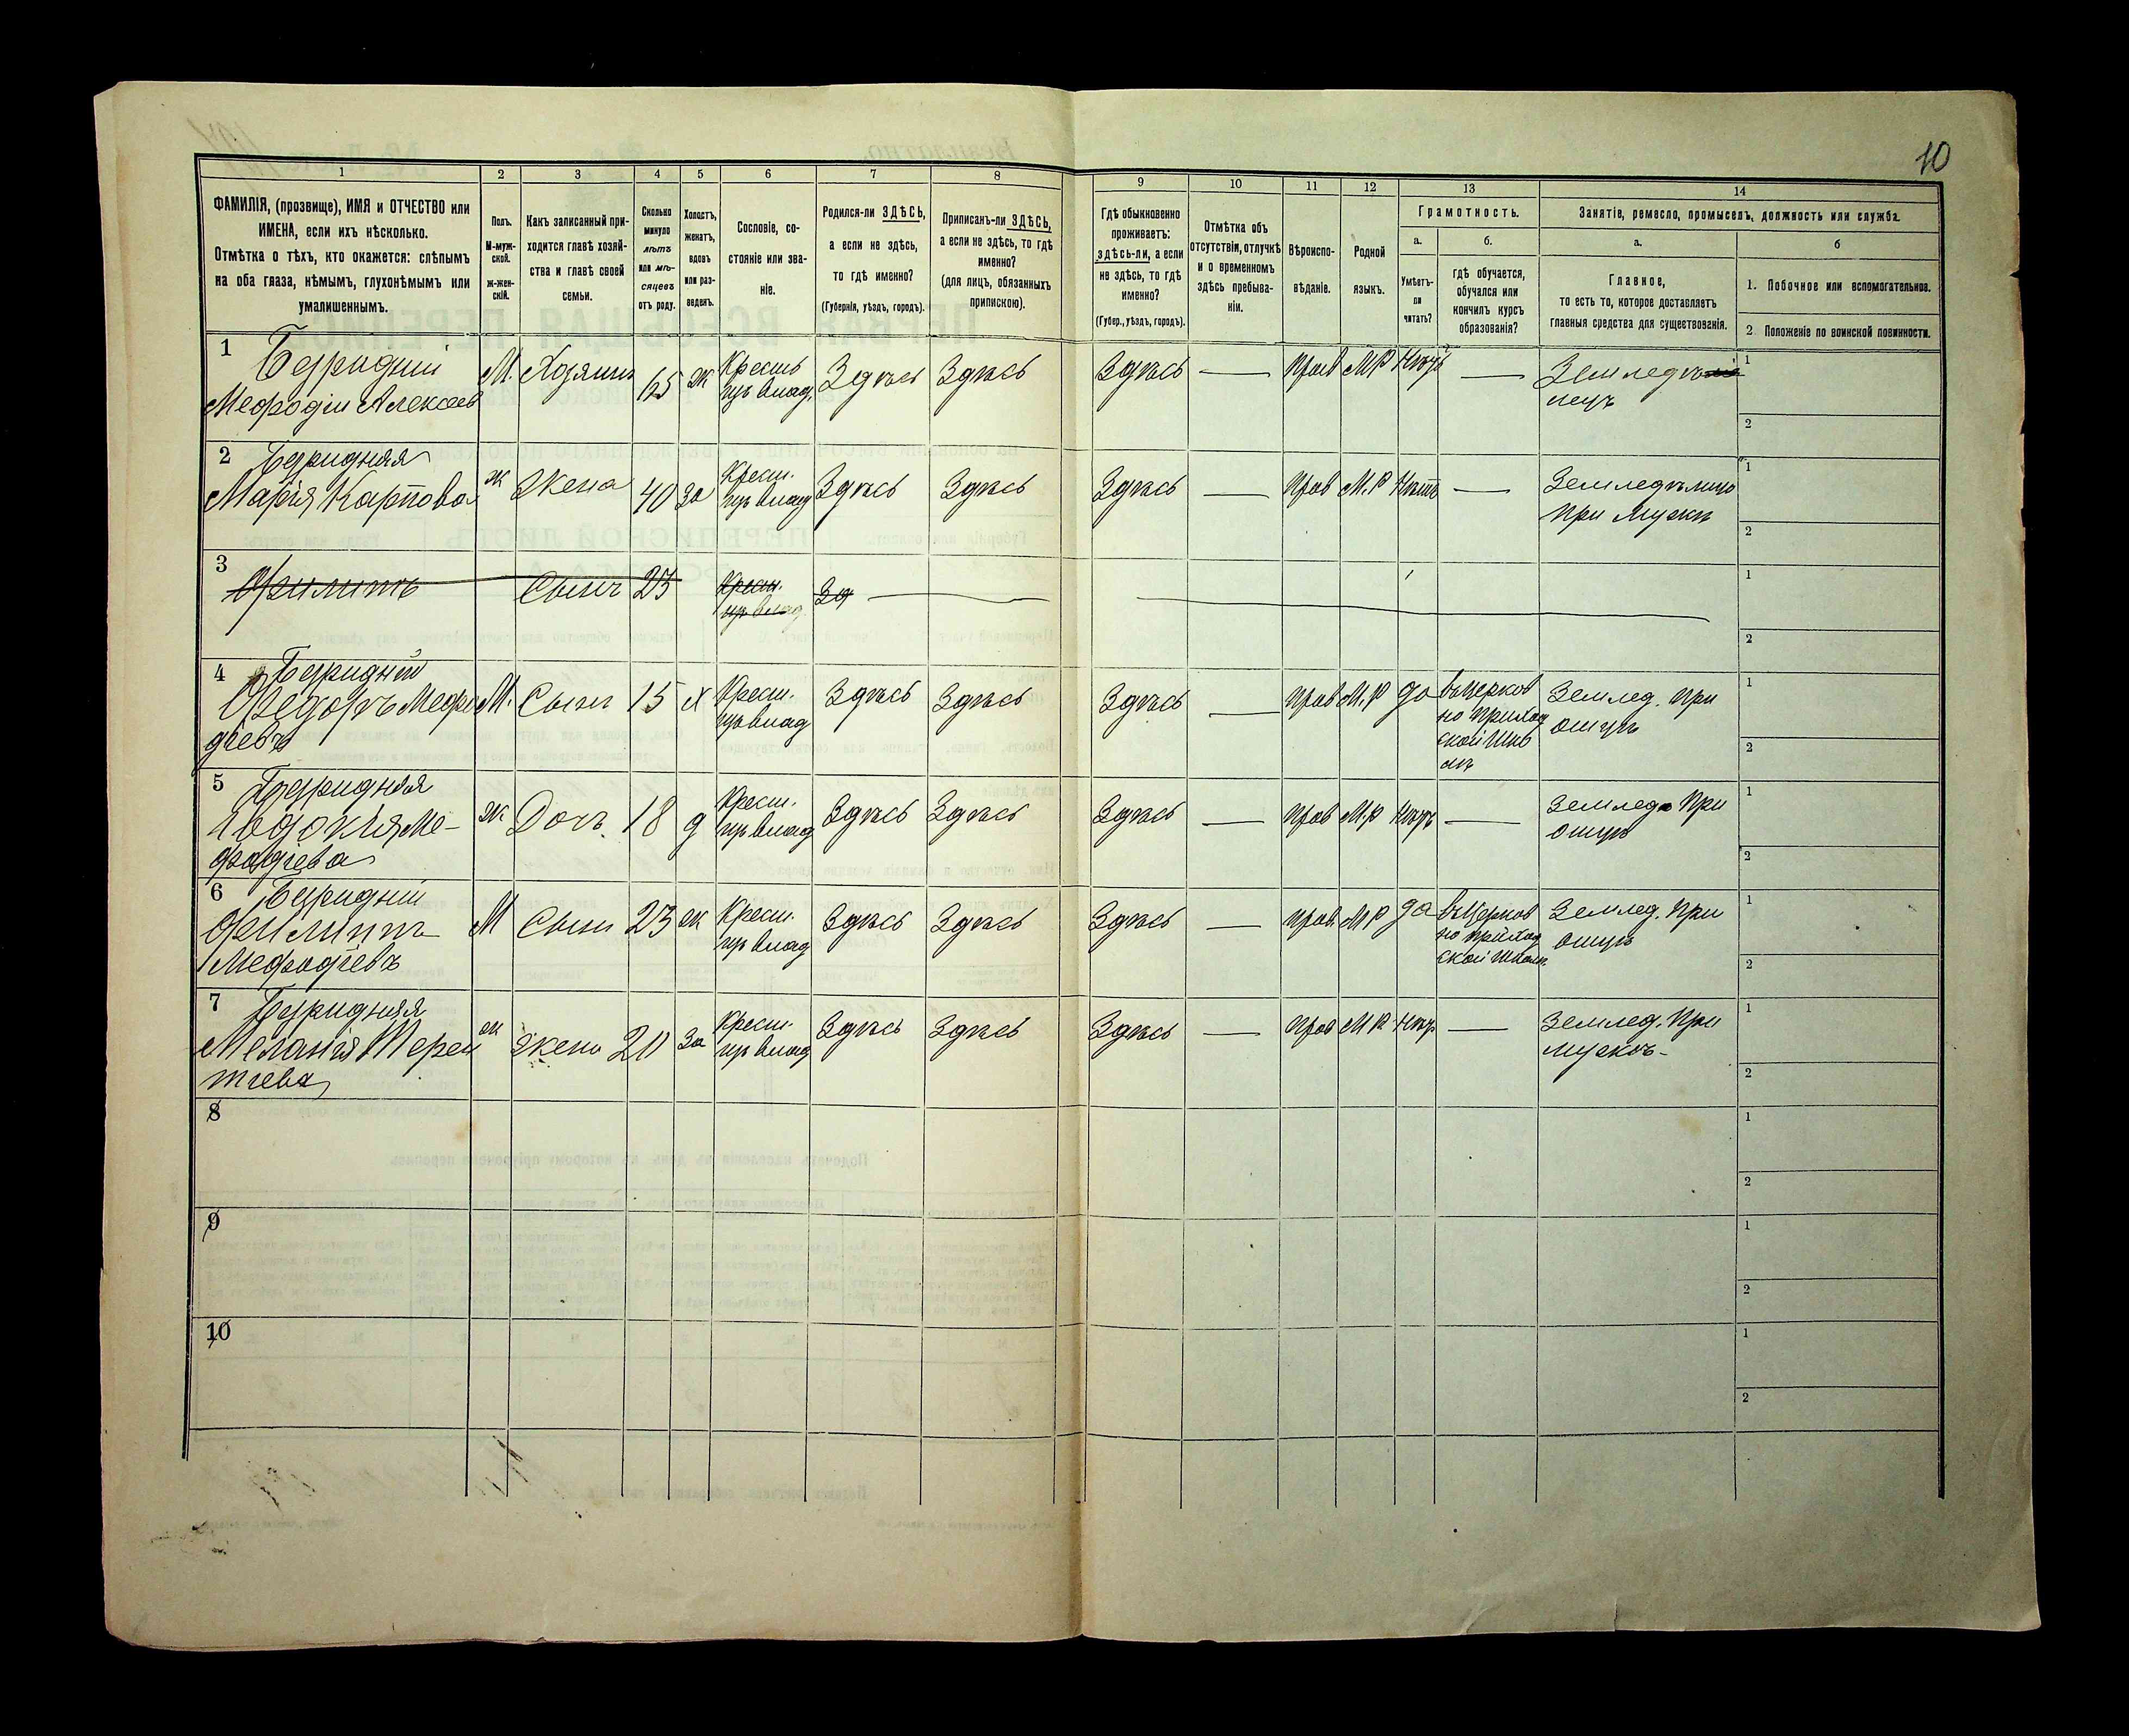 10
1
2
3
4
5
6
7
8
9
10
11
12
13
14
ФАМИЛІЯ, (прозвище), ИМЯ и ОТЧЕСТВО или
ИМЕНА, если ихъ нѣсколько.
Отмѣтка о тѣхъ, кто окажется: слѣпымъ
на оба глаза, нѣмымъ, глухонѣмымъ или
умалишеннымъ.
Полъ.
М-муж-
ской.
Ж-жен-
скій.
Какъ записанный при-
ходится главѣ хозяй-
ства и главѣ своей
семьи.
Сколько
минуло
лѣтъ
или мѣ-
сяцевъ
отъ роду.
Холостъ,
женатъ,
вдовъ
или раз-
веденъ.
Сословіе, со-
стояніе или зва-
ніе.
Родился-ли ЗДѢСЬ,
а если не здѣсь,
то гдѣ именно?
(Губернія, уѣздъ, городъ).
Приписанъ-ли ЗДѢСЬ,
а если не здѣсь, то гдѣ
именно?
(для лицъ, обязанныхъ
припискою).
Гдѣ обыкновенно
проживаетъ:
здѣсь-ли, а если
не здѣсь, то гдѣ
именно?
(Губер., уѣздъ, городъ).
Отмѣтка объ
отсутствіи, отлучкѣ
и о временномъ
здѣсь пребыва-
ніи.
Вѣроиспо-
вѣданіе.
Родной
языкъ.
Грамотность.
а.
Умѣетъ-
ли
читать?
б.
гдѣ обучается,
обучался или
кончилъ курсъ
образованія?
Занятіе, ремесло, промыселъ, должность или служба.
а.
Главное,
то есть то, которое доставляетъ
главныя средства для существованія.
б
1. Побочное или вспомогательное.
2 Положеніе по воинской повинности.
1
Безридній
Мефодій Алексеев
М. Хозяинъ 65 ж Крестъ
изъ влад. Здѣсь Здѣсь Здѣсь — Прав М Р Нѣтъ — Земледѣ
лецъ
1
2
2 Безридняя
Марія Карпова ж Жена 40 За Крест.
изъ влад Здѣсь Здѣсь Здѣсь — Прав М.Р Нѣтъ — Земледѣлица
при мужѣ
1
2
3
Филипъ Сынъ 23 Крест.
изъ влад. Зд
1
2
4 Безридній
Федоръ Мефо
діевъ М. Сынъ 15 х Крест.
изъ влад Здѣсь Здѣсь Здѣсь — Прав М.Р да въ Церков
но приход
ской Шко
лѣ Землед. при
отцѣ
1
2
5 Безридняя
Евдокія Ме-
фодіева ж Дочь. 18 д Крест.
изъ влад Здѣсь Здѣсь Здѣсь — Прав М.Р Нѣтъ — Землед при
отцѣ
1
2
6 Безридній
Филиппъ
Мефодіевъ М Сынъ 23 ж Крест.
изъ влад Здѣсь Здѣсь Здѣсь — Прав. М Р да въ Церков
но приход
ской Школѣ. Землед. при
отцѣ
1
2
7 Безридняя
Меланія Терен
тіева ж Жена 20 За Крест.
изъ влад Здѣсь Здѣсь Здѣсь — Прав М Р Нѣтъ — Землед. при
мужѣ-
1
2
8
1
2
9
1
2
10
1
2